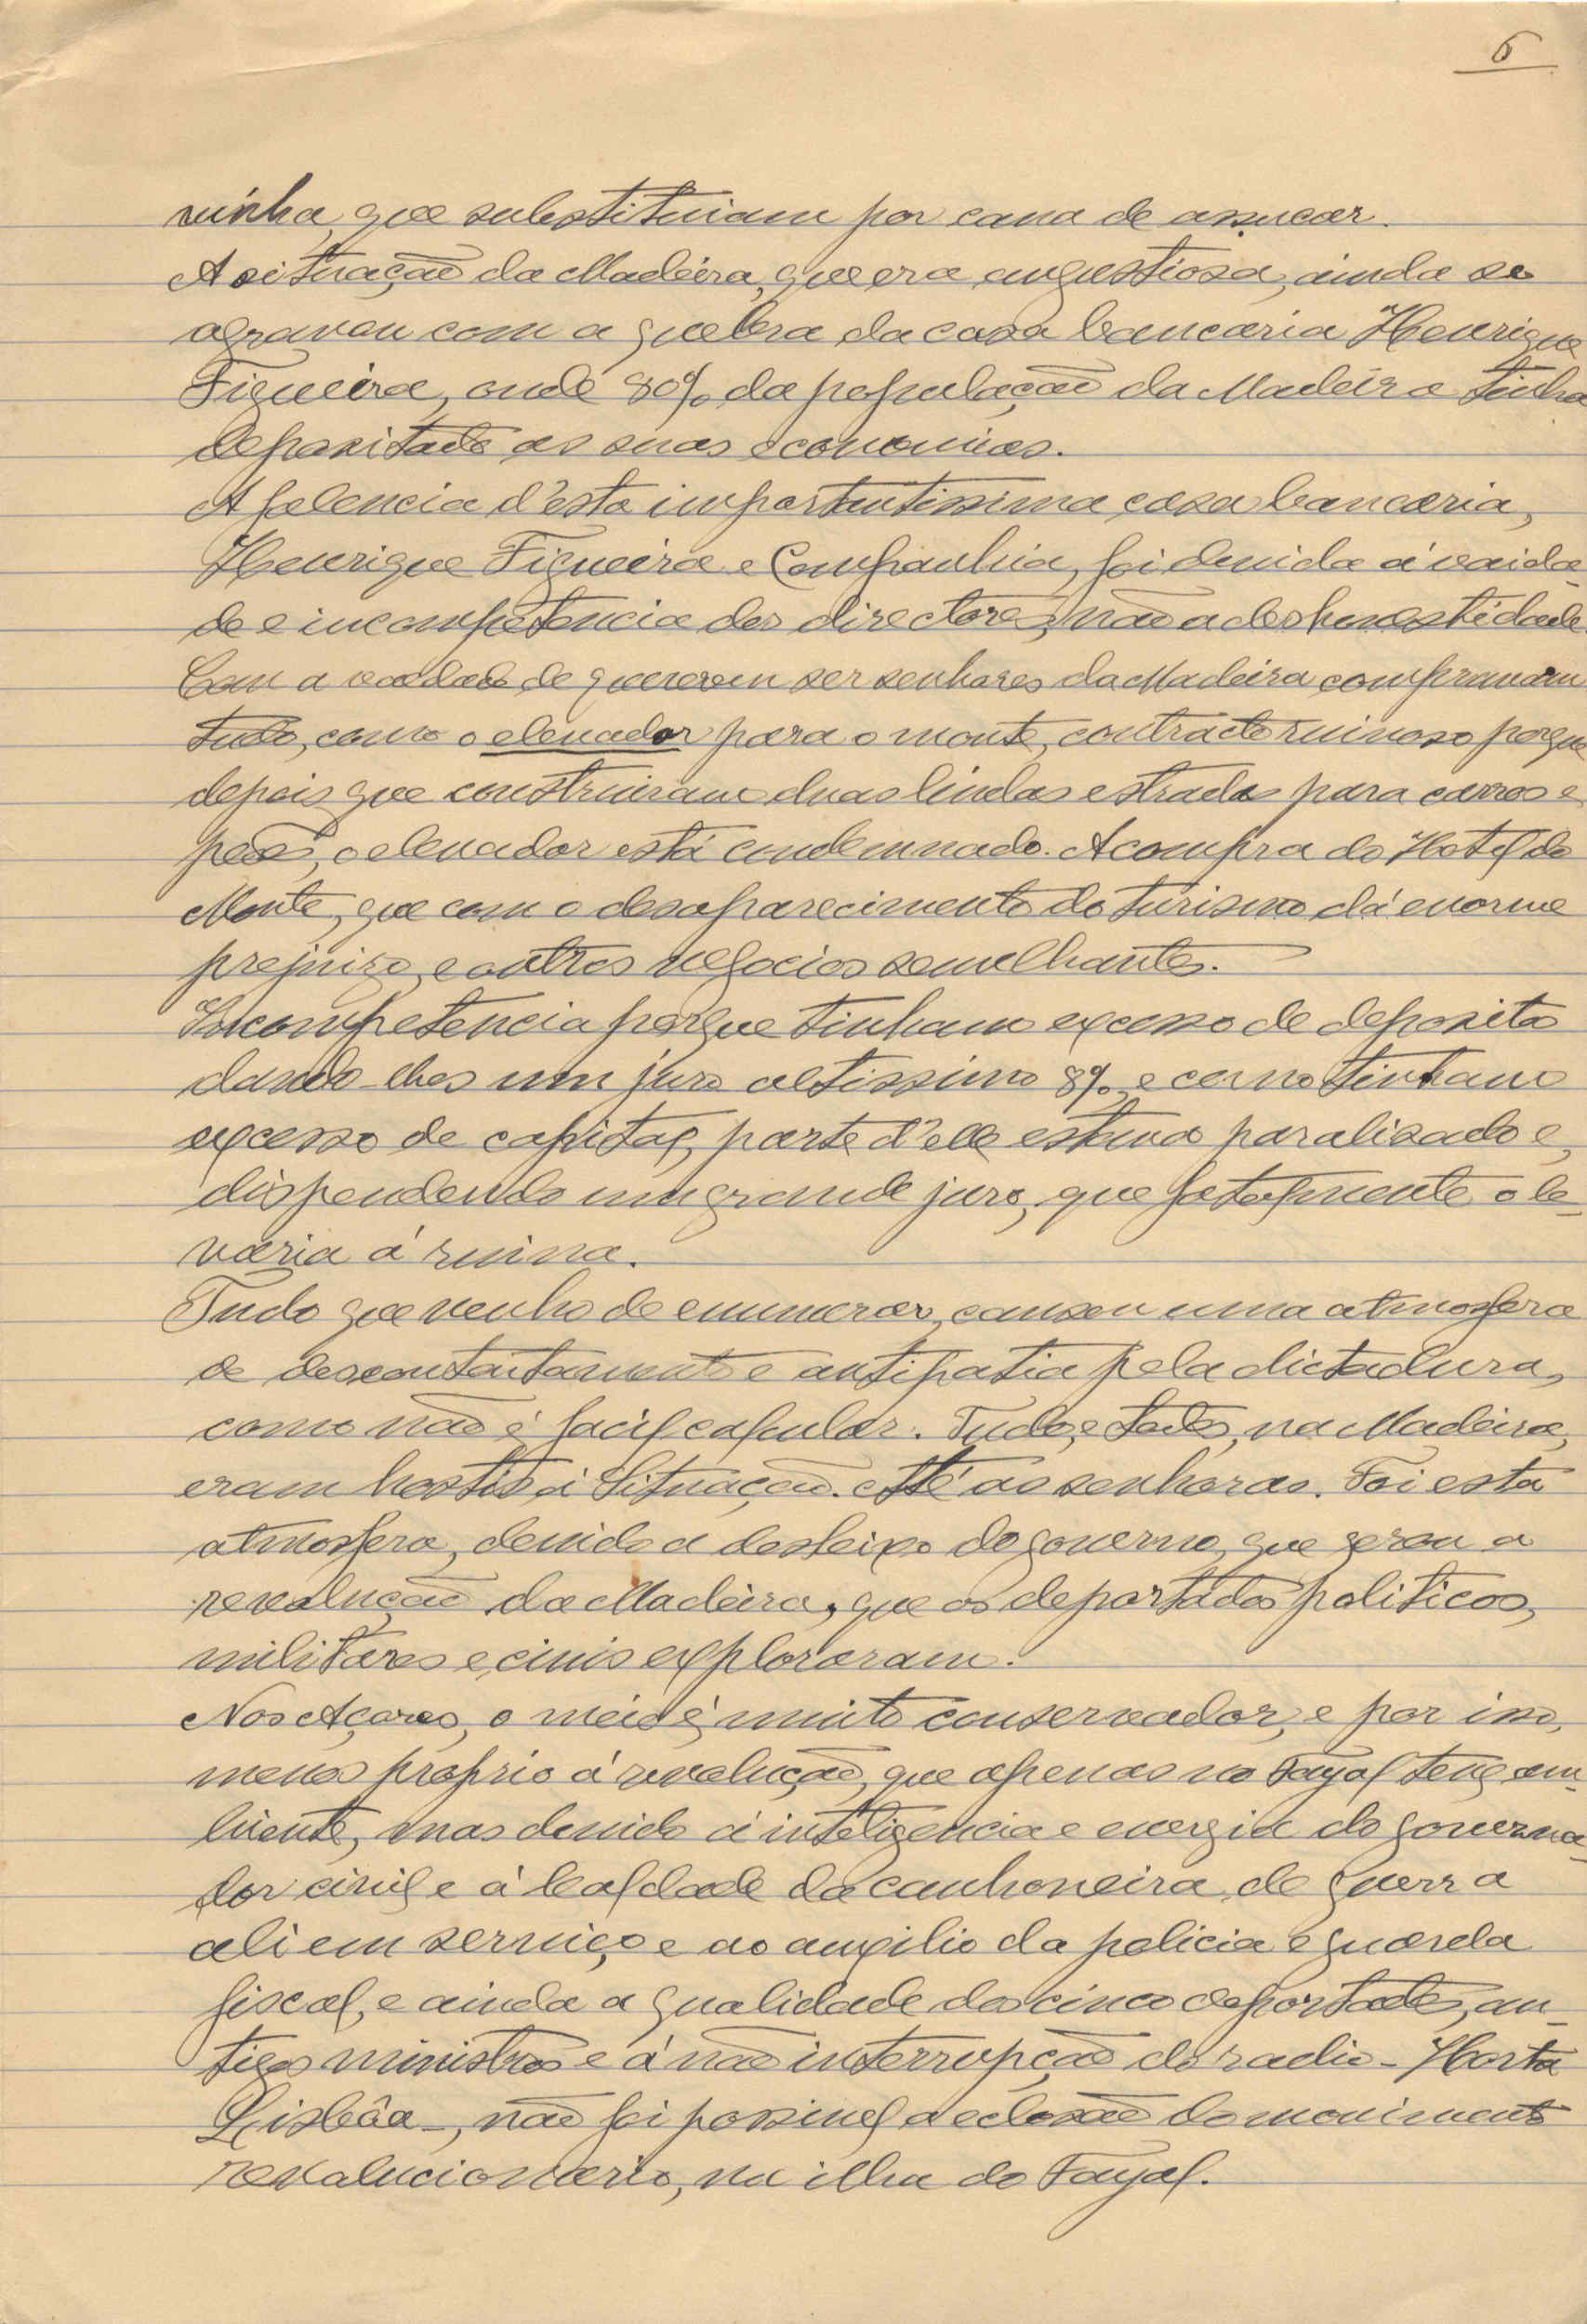 6
vinha, que substituiam por cana de assucar.
A situação da Madeira, que era angustiosa, ainda se
agravou com a quebra da casa bancaria Henrique
Figueira, onde 80% da população da Madeira tinha
depositado as suas economias.
A falencia d'esta importantissima casa bancaria,
Henrique Figueira e Companhia, foi devida á vaida-
de e incompetencia dos directores, não a deshonestidade
Com a vaidade de quererem ser senhores da Madeira compraram
tudo, como o elevador para o monte, contracto ruinoso porque
depois que construiram duas lindas estradas para carros e
peões, o elevador está condemnado. A compra do Hotel do
Monte, que com o desaparecimento do turismo dá enorme
prejuizo, e outros negocios semelhantes.
Incompetencia porque tinham excesso de deposito
dando-lhes um juro altissimo 8%, e como tinham
excesso de capital, parte d'ele estava paralisado e,
dispendendo um grande juro, que fatalmente o le-
varia á ruina.
Tudo que venho de enumerar, causou uma atmosfera
de descontentamento e antipatia pela dictadura,
como não é facil calcular. Tudo, e todos, na Madeira,
eram hostis á Situação. Até as senhoras. Foi esta
atmosfera, devido a desleixo do governo, que gerou a
revolução da Madeira, que os deportados politicos,
militares e civis exploraram.
Nos Açores, o meio é muito conservador, e por isso,
menos proprio á revolução, que apenas no Fayal teve am-
biente, mas devido á inteligencia e energia do governa-
dor civil e á lealdade da canhoneira de guerra
ali em serviço e ao auxilio da policia e guarda
fiscal, e ainda a qualidade dos cinco deportados, an-
tigos ministros e á não interrupção do radio - Horta
Lisbôa -, não foi possivel a eclosão do movimento
revolucionario, na ilha do Fayal.